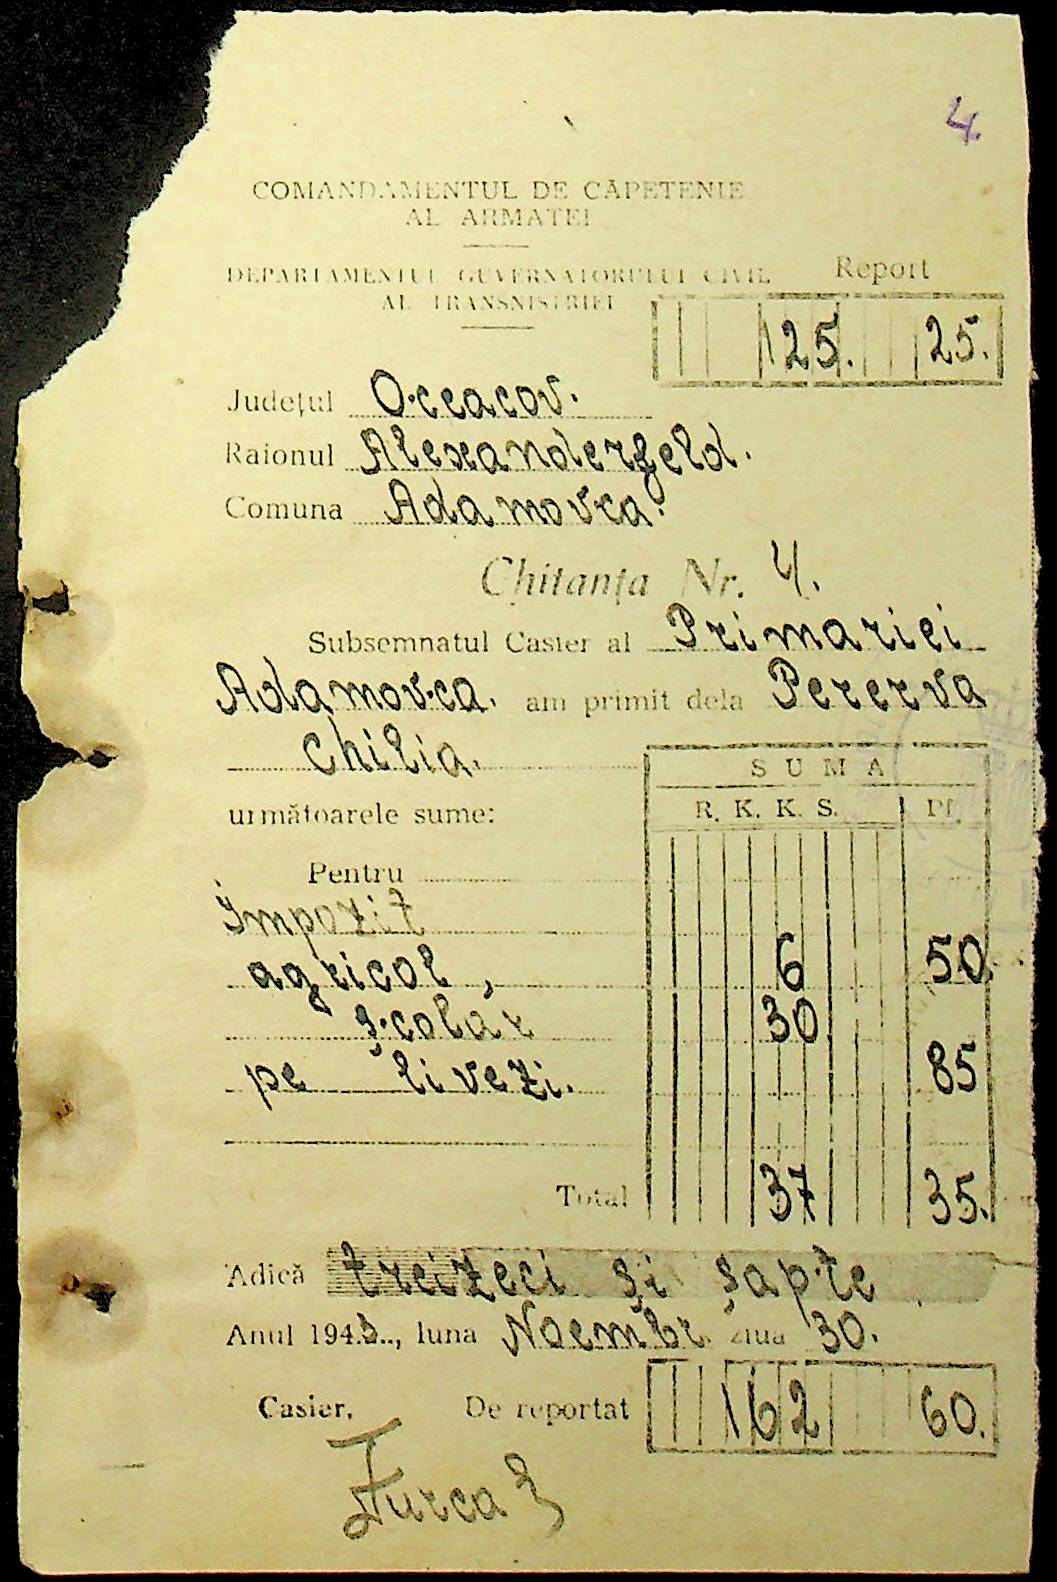 4.
COMANDAMENTUL DE CĂPETENIE
AL ARMATEI
DEPARTAMENTUL GUVERNATORULUI CIVIL
AL TRANSNISTRIEI
Report
125. 25.
Județul Oceacov.
Raionul Alexanderfeld.
Comuna Adamovca.
Chitanța Nr. 4.
Subsemnatul Casier al Primariei
Adamovca. am primit dela Pererva
Chilia.
SUMA
următoarele sume: R. K. K. S. Pf.
Pentru
Impozit
agricol, 6 50.
școlar 30
pe livezi. 85
Total 37 35.
Adică treizeci și șapte
Anul 1943.., luna Noembr. ziua 30.
Casier, De reportat 162 60.